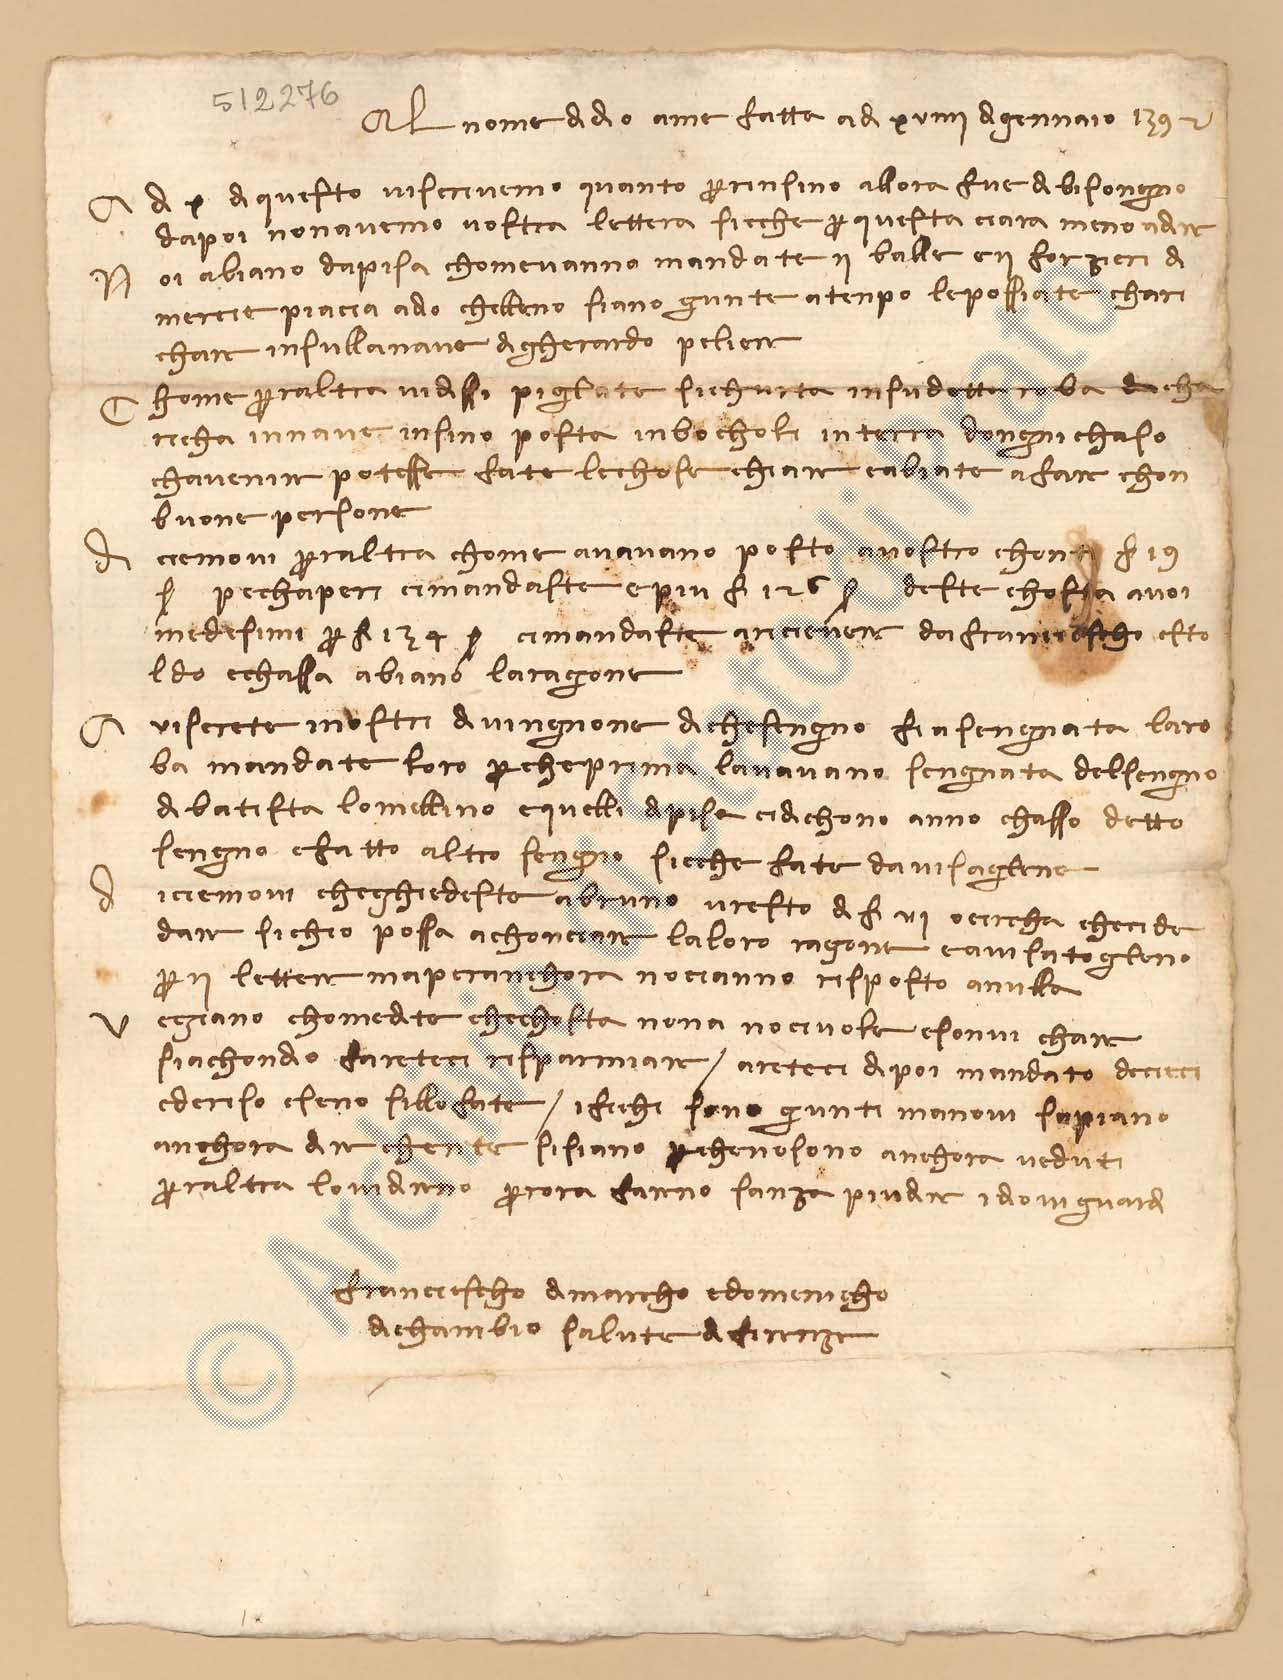 512276
Al nome di dio ame fatta a di xviiii di gennaio 1392
A di x di questo vi scrivemo quanto per insino allora fue di bisongno
dapoi nonavemo vostra lettera sicche per questa ciara meno a dire
Noi abiano da pisa chome vanno mandate ii balle e ii forzieri di
mercie piacia a dio chelleno siano gunte a tenpo le possiate chari
chare in sulla nave di gherardo pelieri
Chome per altra vi dissi pigliate sichurta in su detta roba da cha
richa in nave insino posta in bocholi in terra dongni chaso
chavenire potesse fate le chose chiare e abiate a fare chon
buone persone
diciemovi per altra chome avavano posto a vostro chonto f 19
s pe chaperi ci mandaste e piu f 126 s deste chosta a voi
medesimi per f 134 s ci mandaste a ricievere da franciescho esto
ldo e chassa abiano la ragone
Aviserete i nostri di vingnone di che sengno si a sengnata la ro
ba mandate loro perche prima lavavano sengnata del sengno
di batista lomellino e quelli di pisa ci dichono anno chasso detto
sengno e fatto altro sengno sicche fate davisaglene
diciemovi che ghiedeste a bruno i resto di f vi o circha che ci de
dare sicheo possa achonciare la loro ragone e avisatogleno
per ii lettere ma per anchora no ci anno risposto a nulla
Vegiano chome dite che chosta nona nocivole e sonvi chare
sia chon dio fareteci risparmiare / areteci dipoi mandato dicieci
e de riso e seno sillo fate / i fichi sono gunti ma novi sapiano
anchora dire chente si siano perche no sono anchora veduti
per altra lo vi direno per ora farno sanza piu dire idio vi guardi
franciescho di marcho e domenicho
di chambio salute di firenze
© Archivio di Stato di Prato